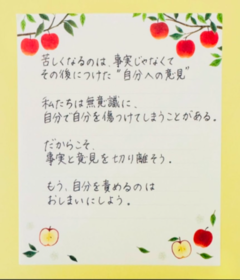 苦しくなるのは、事実じゃなくて
その後につけた"自分への意見"
私たちは無意識に、
自分で自分を傷つけてしまうことがある。
だからこそ、
事実と意見を切り離そう。
もう、自分を責めるのは
おしまいにしよう。